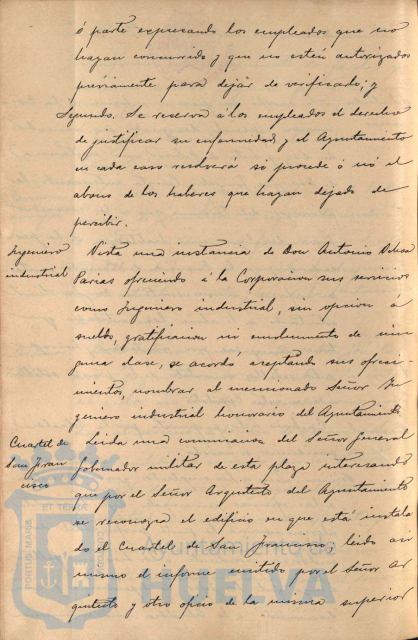 ó parte expresando los empleados que no
hayan concurrido y que no estén autorizados
préviamente para dejar de verificarlo; y
Segundo. Se reserva á los empleados el derecho
de justificar su enfermedad, y el Ayuntamiento
en cada caso resolverá si procede ó nó el
abono de los haberes que hayan dejado de
percibir.
Ingeniero
industrial
Vista una instancia de Don Antonio
Parias ofreciendo á la Corporacion sus servicios
como Ingeniero industrial, sin opcion á
sueldo, gratificacion ni emolumento de nin
guna clase, se acordó aceptando sus ofreci
mientos, nombrar al mencionado Señor In
geniero industrial honorario del Ayuntamiento.
Cuartel de
San Fran
cisco
Leida una comunicacion del Señor General
Gobernador militar de esta plaza interesando
que por el Señor Arquitecto del Ayuntamiento
se reconozca el edificio en que está instala
do el Cuartel de San Francisco, leido asi
mismo el informe emitido por el Señor Ar
quitecto y otro oficio de la misma superior
PORTUS MARIS
ET TERRAE
Ayuntamiento de
HUELVA